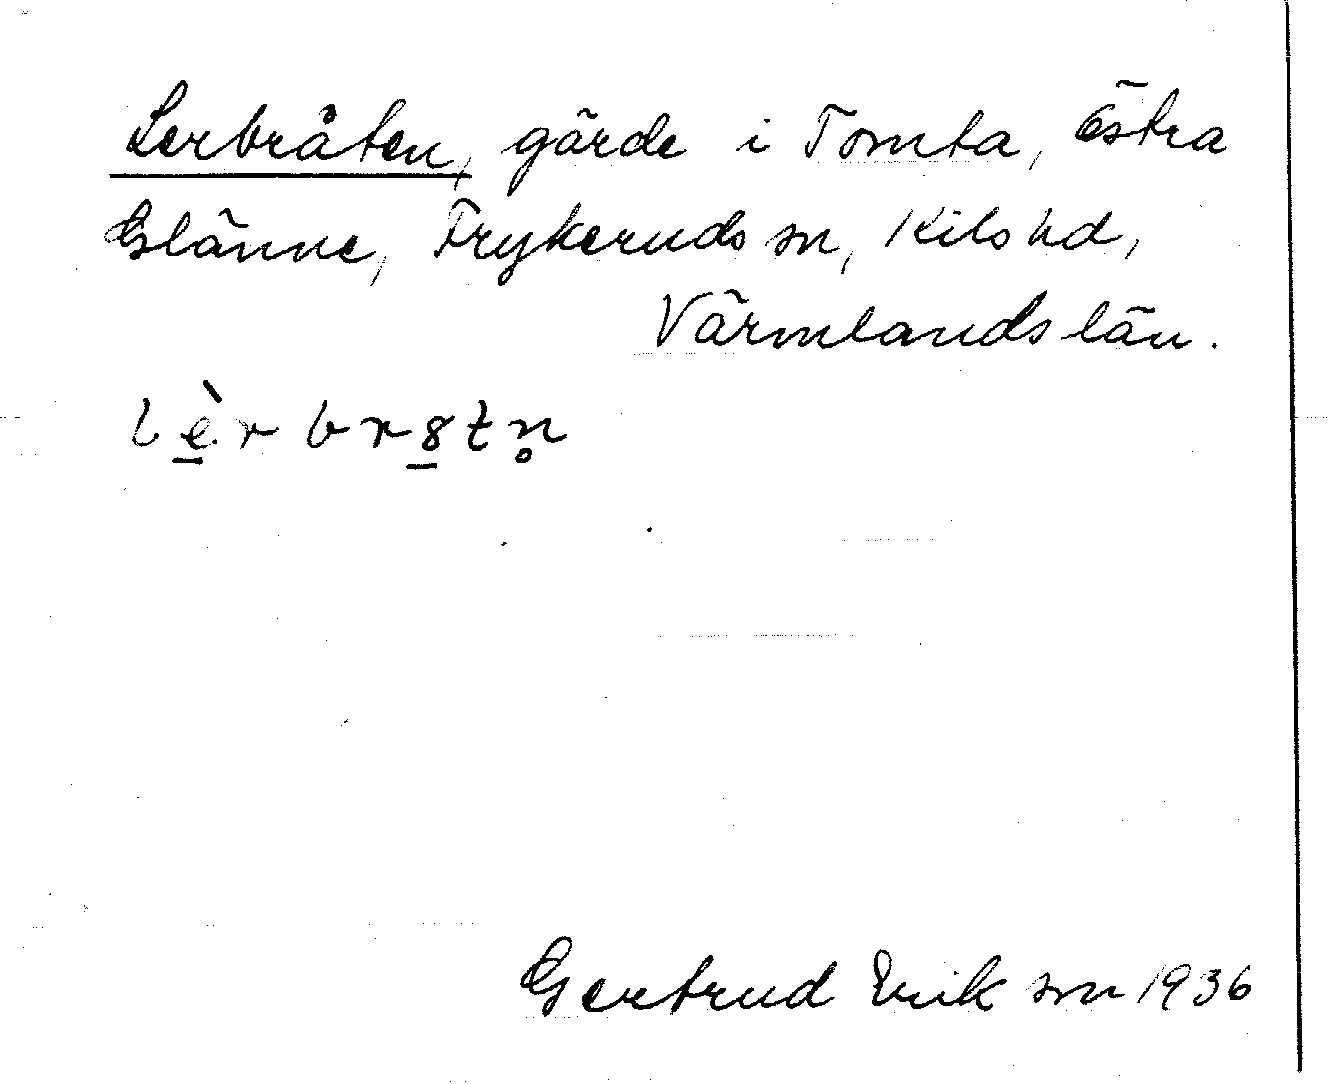 Lerbråten, gärde i Tomta, Östra
Glänne, Frykeruds sn, Kils hd,
Värmlands län.
lè̠rbr8̠tn̥
Gertrud Erikson 1936